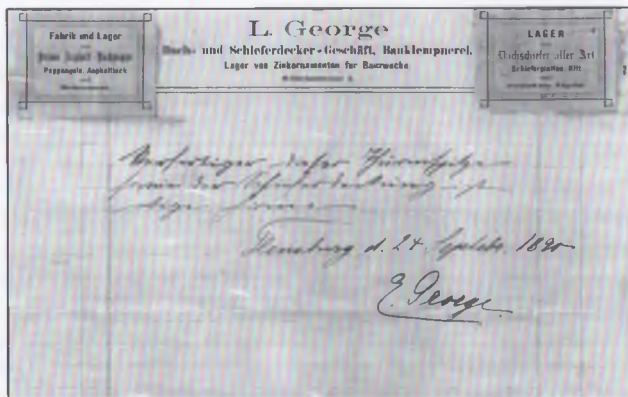 Fabrik und Lager
von
Prima Asphalt-Dachpappe
Pappnägeln, Asphaltlack
und
L. George
Dach- und Schieferdecker-Geschäft, Bauklempnerei.
Lager von Zinkornamenten für Bauzwecke.
LAGER
von
Dachschiefer aller Art
Schieferplatten, Kitt
und
Verfertiger dieser Thurmspitze
sowie der Schieferdeckung ist
obige Firma
Flensburg d. 24 Septebr. 1890
L. George.